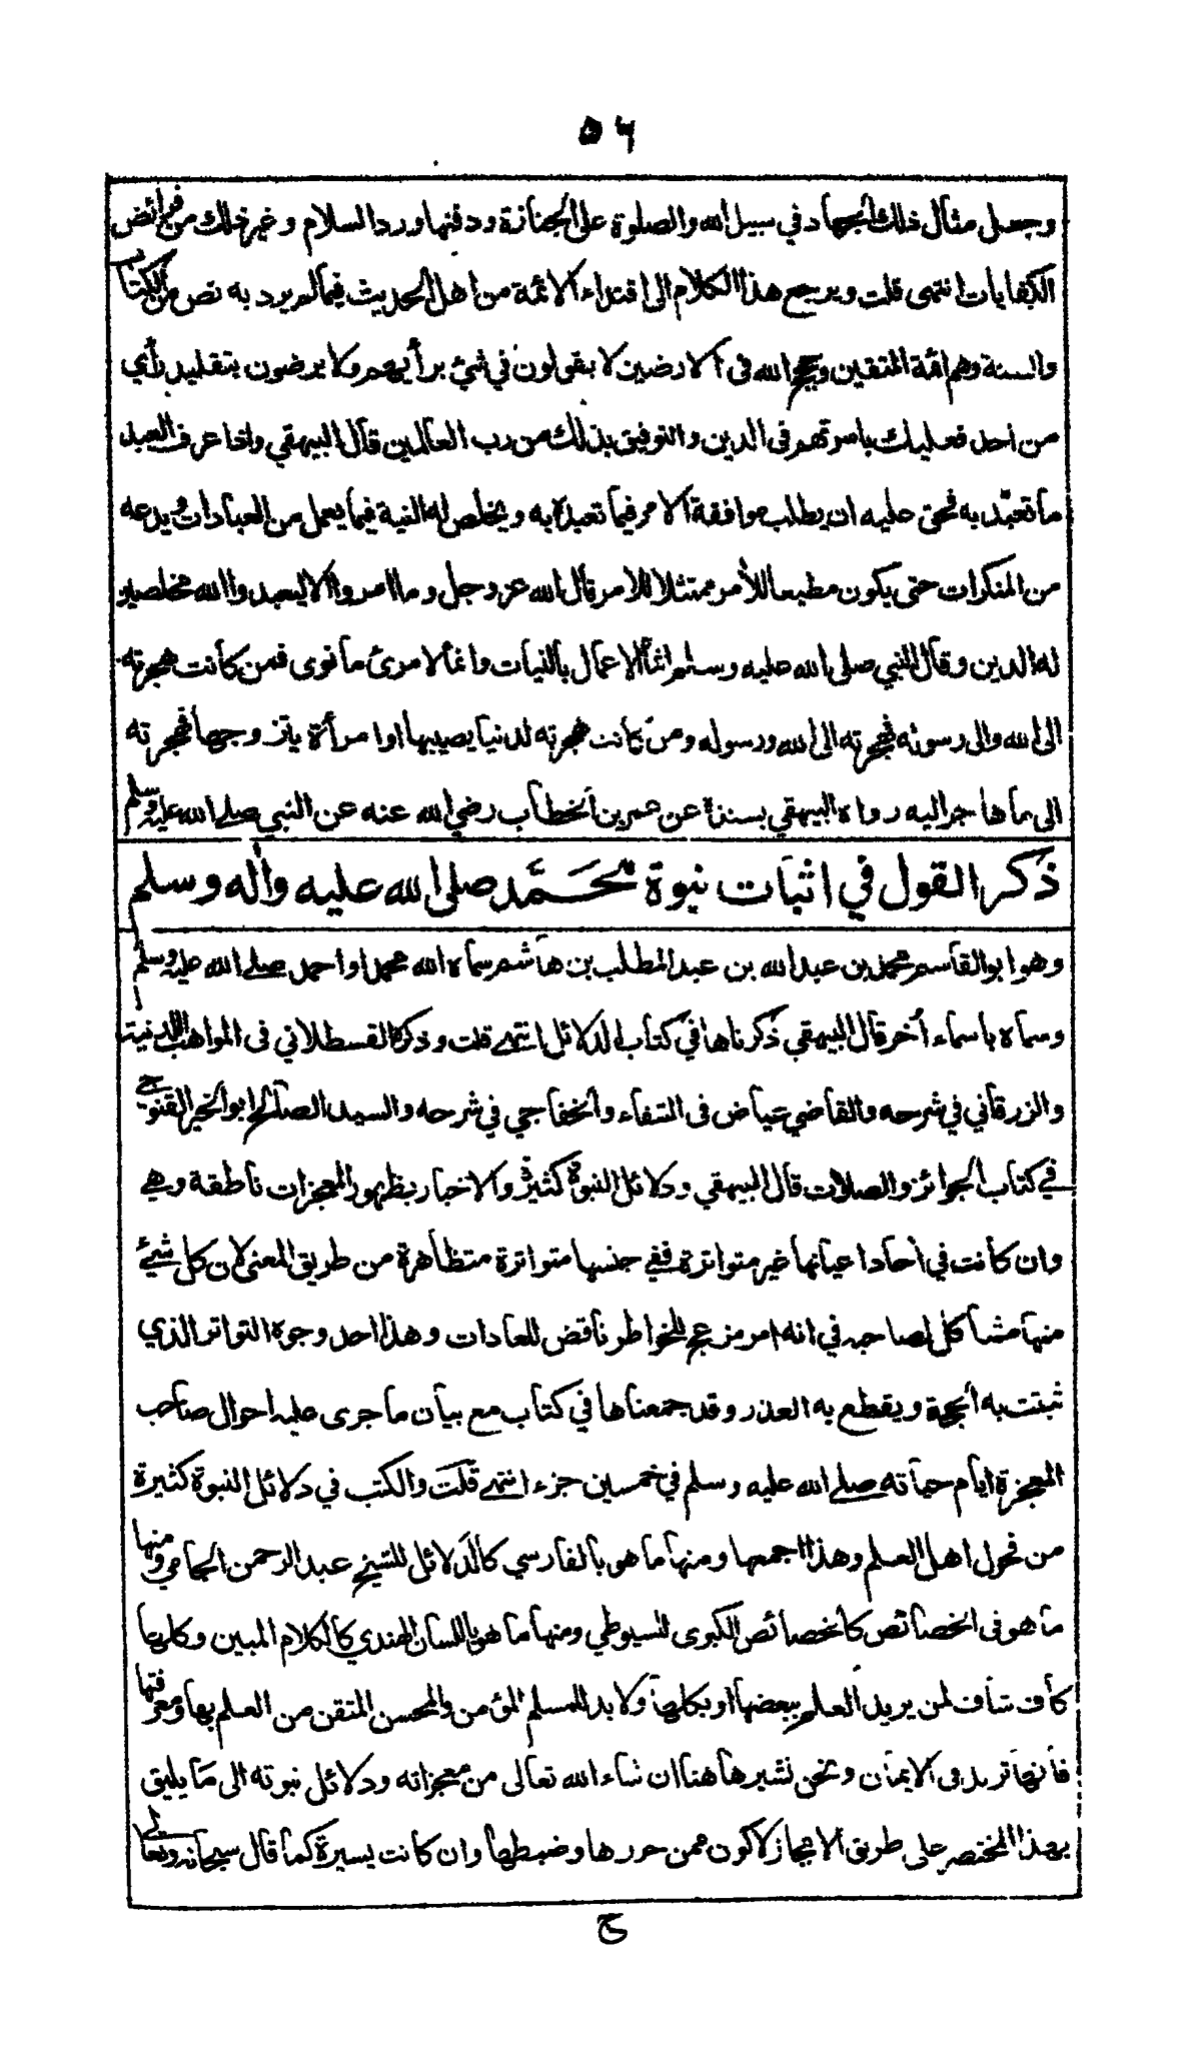 ٥٦
وجعل مثال ذلك الجهاد في سبيل الله والصلوة على الجنازة ودفنها ورد السلام وغير ذلك من فرائض
الكفايات انتهى قلت ويرجع هذا الكلام الى اقتداء الائمة من اهل الحديث فيما لم يرد به نص من الكتاب
والسنة وهم ائمة المتقين وحجج الله فى الارضين لا يقولون في شئ برأيهم ولا يرضون بتقليد رأي
من احد فعليك بامرتهم فى الدين والتوفيق بذلك من رب العالمين قال البيهقي واذا عرف العبد
ما تعبّد به فحق عليه ان يطلب موافقة الامر فيما تعبد به ويخلص له النية فيما يعمل من العبادات ويدعه
من المنكرات حتى يكون مطيعا للأمر ممتثلا للامر قال الله عز وجل وما امروا الا ليعبدوا الله مخلصين
له الدين وقال النبي صلى الله عليه وسلم انما الاعمال بالنيات وانما لامرئ ما نوى فمن كانت هجرته
الى الله والى رسوله فهجرته الى الله ورسوله ومن كانت هجرته لدنيا يصيبها او امرأة يتزوجها فهجرته
الى ما هاجر اليه رواه البيهقي بسنده عن عمر بن الخطاب رضي الله عنه عن النبي صلى الله عليه وسلم
ذكر القول في اثبات نبوة محمَّد صلى الله عليه وأله وسلم
وهو ابو القاسم محمد بن عبد الله بن عبد المطلب بن هاشم سماه الله محمدا واحمد صلى الله عليه وسلم
وسماه باسماء أخر قال البيهقي ذكرناها في كتاب الدلائل انتهى قلت وذكر القسطلاني فى المواهب اللدنية
والزرقاني في شرحه والقاضي عياض فى الشفاء والخفاجي في شرحه والسيد الصالح ابو الخير القنوجي
في كتاب الجوائز والصلات قال البيهقي ودلائل النبوة كثيرة والاخبار بظهور المعجزات ناطقة وهي
وان كانت في احاد اعيانها غير متواترة ففي جنسها متواترة متظاهرة من طريق المعنى لان كل شيئ
منها مشاكل لصاحبه في انه امر مزعج للخواطر ناقض للعادات وهذا احد وجوه التواتر الذي
ثبتت به الحجة ويقطع به العذر وقد جمعناها في كتاب مع بيان ما جرى عليه احوال صاحب
المعجزة ايام حياته صلى الله عليه وسلم في خمسين جزء انتهى قلت والكتب في دلائل النبوة كثيرة
من فحول اهل العلم وهذا اجمعها ومنها ما هو بالفارسي كالدلائل للشيخ عبد الرحمن الجامي ومنها
ما هو فى الخصائص كالخصائص الكبرى للسيوطي ومنها ما هو باللسان الهندي كالكلام المبين وكلها
كاف شاف لمن يريد العلم ببعضها او بكلها ولا بد للمسلم المؤمن والمحسن المتقن من العلم بها ومعرفتها
فانها تزيد فى الايمان ونحن نشير هاهنا ان شاء الله تعالى من معجزاته ودلائل نبوته الى ما يليق
بهذا المختصر على طريق الايجاز لاكون ممن حررها وضبطها وان كانت يسيرة كما قال سبحانه وتعالى
ح